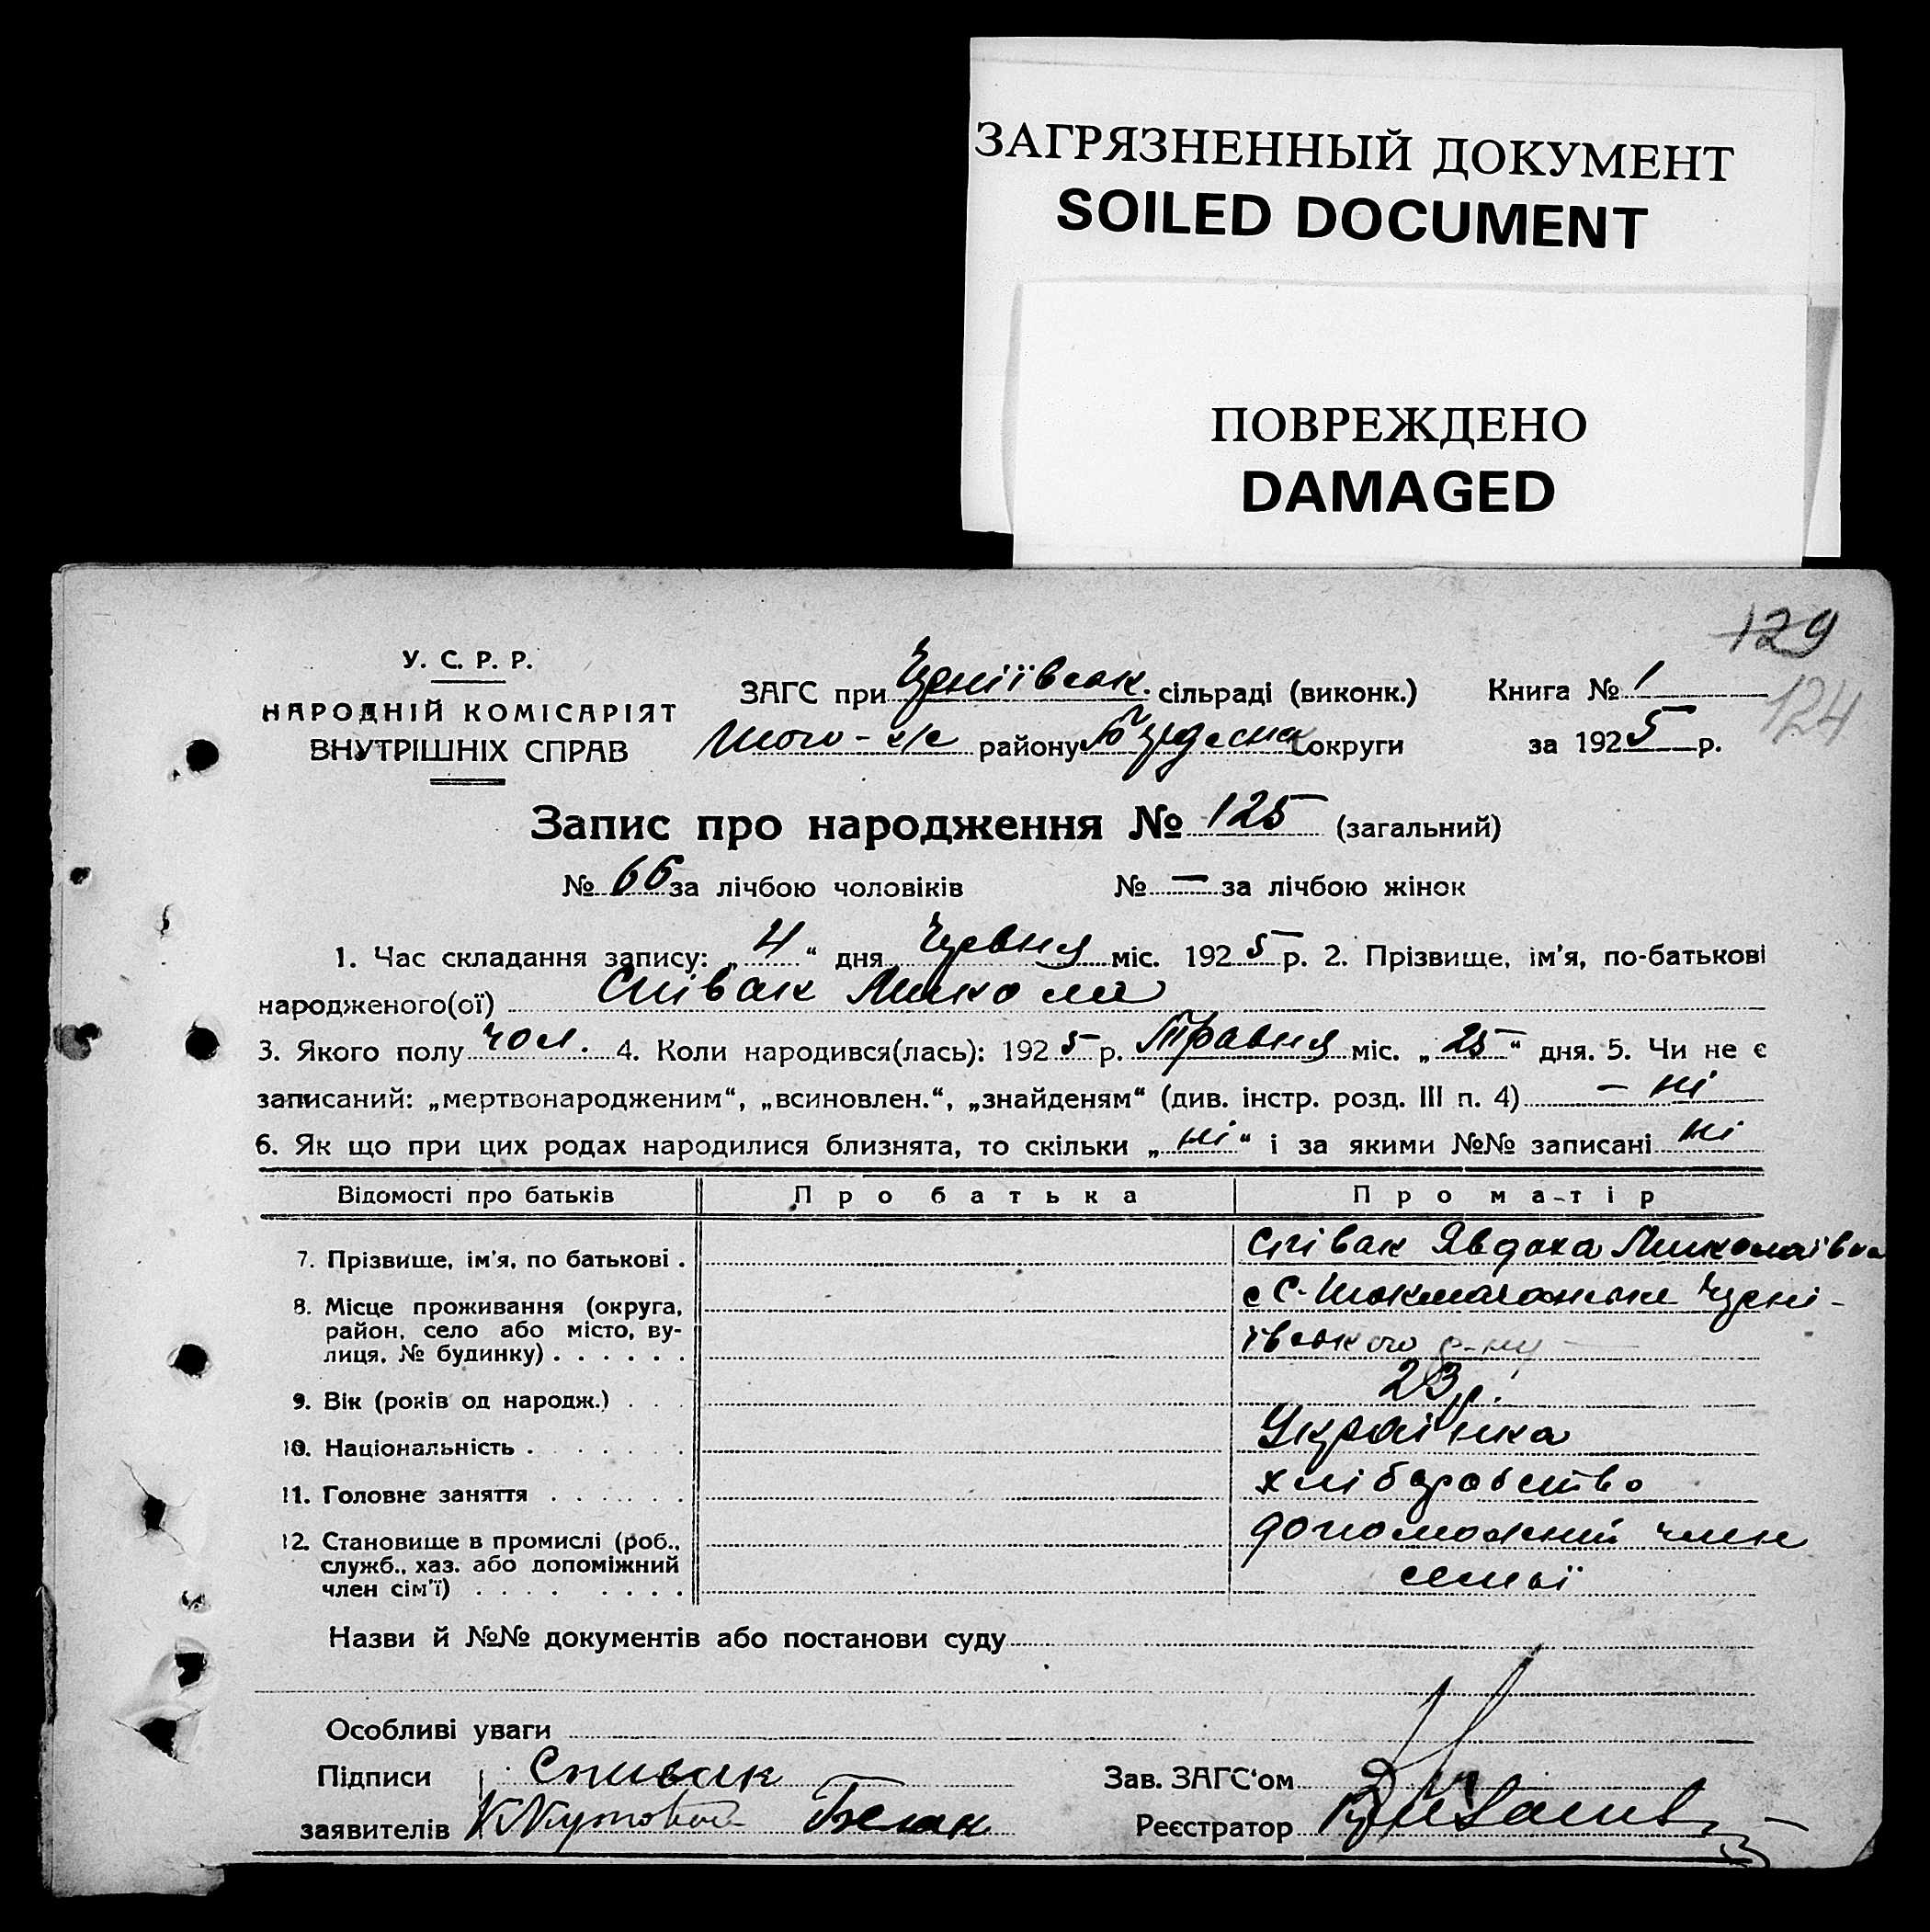 ЗАГРЯЗНЕННЫЙ ДОКУМЕНТ
SOILED DOCUMENT
ПОВРЕЖДЕНО
DAMAGED
129
124
У. С. Р. Р.
НАРОДНІЙ КОМІСАРІЯТ
ВНУТРІШНІХ СПРАВ
ЗАГС при Черніївськ. сільраді (виконк.) Книга № 1
району округи за 1925 р.
Запис про народження № 125 (загальний)
№ 66 за лічбою чоловіків № — за лічбою жінок
1. Час складання запису: „4“ дня Червня міс. 1925 р. 2. Прізвище, ім'я, по-батькові
народженого(ої) Співак Микола
3. Якого полу чол. 4. Коли народився(лась): 1925 р. Травня міс. „25“ дня. 5. Чи не є
записаний: „мертвонародженим“, „всиновлен.“, „знайденям“ (див. інстр. розд. III п. 4) — ні
6. Як що при цих родах народилися близнята, то скільки „ні“ і за якими №№ записані ні
Відомості про батьків Про батька Про ма-тір
7. Прізвище, ім'я, по батькові . Співак Явдоха Миколаівна
8. Місце проживання (округа,
район, село або місто, ву-
лиця, № будинку) . . . . . .
Черні-
ївського р-ну
9. Вік (років од народж.) . . . 23 р.
10. Національність . . . . . . . Українка
11. Головне заняття . . . . . . хліборобство
12. Становище в промислі (роб.,
служб., хаз. або допоміжний
член сім'ї) . . . . . . . .
допоможний член
семьї
Назви й №№ документів або постанови суду
Особливі уваги
Підписи Спивак Зав. ЗАГС'ом
заявителів Реєстратор